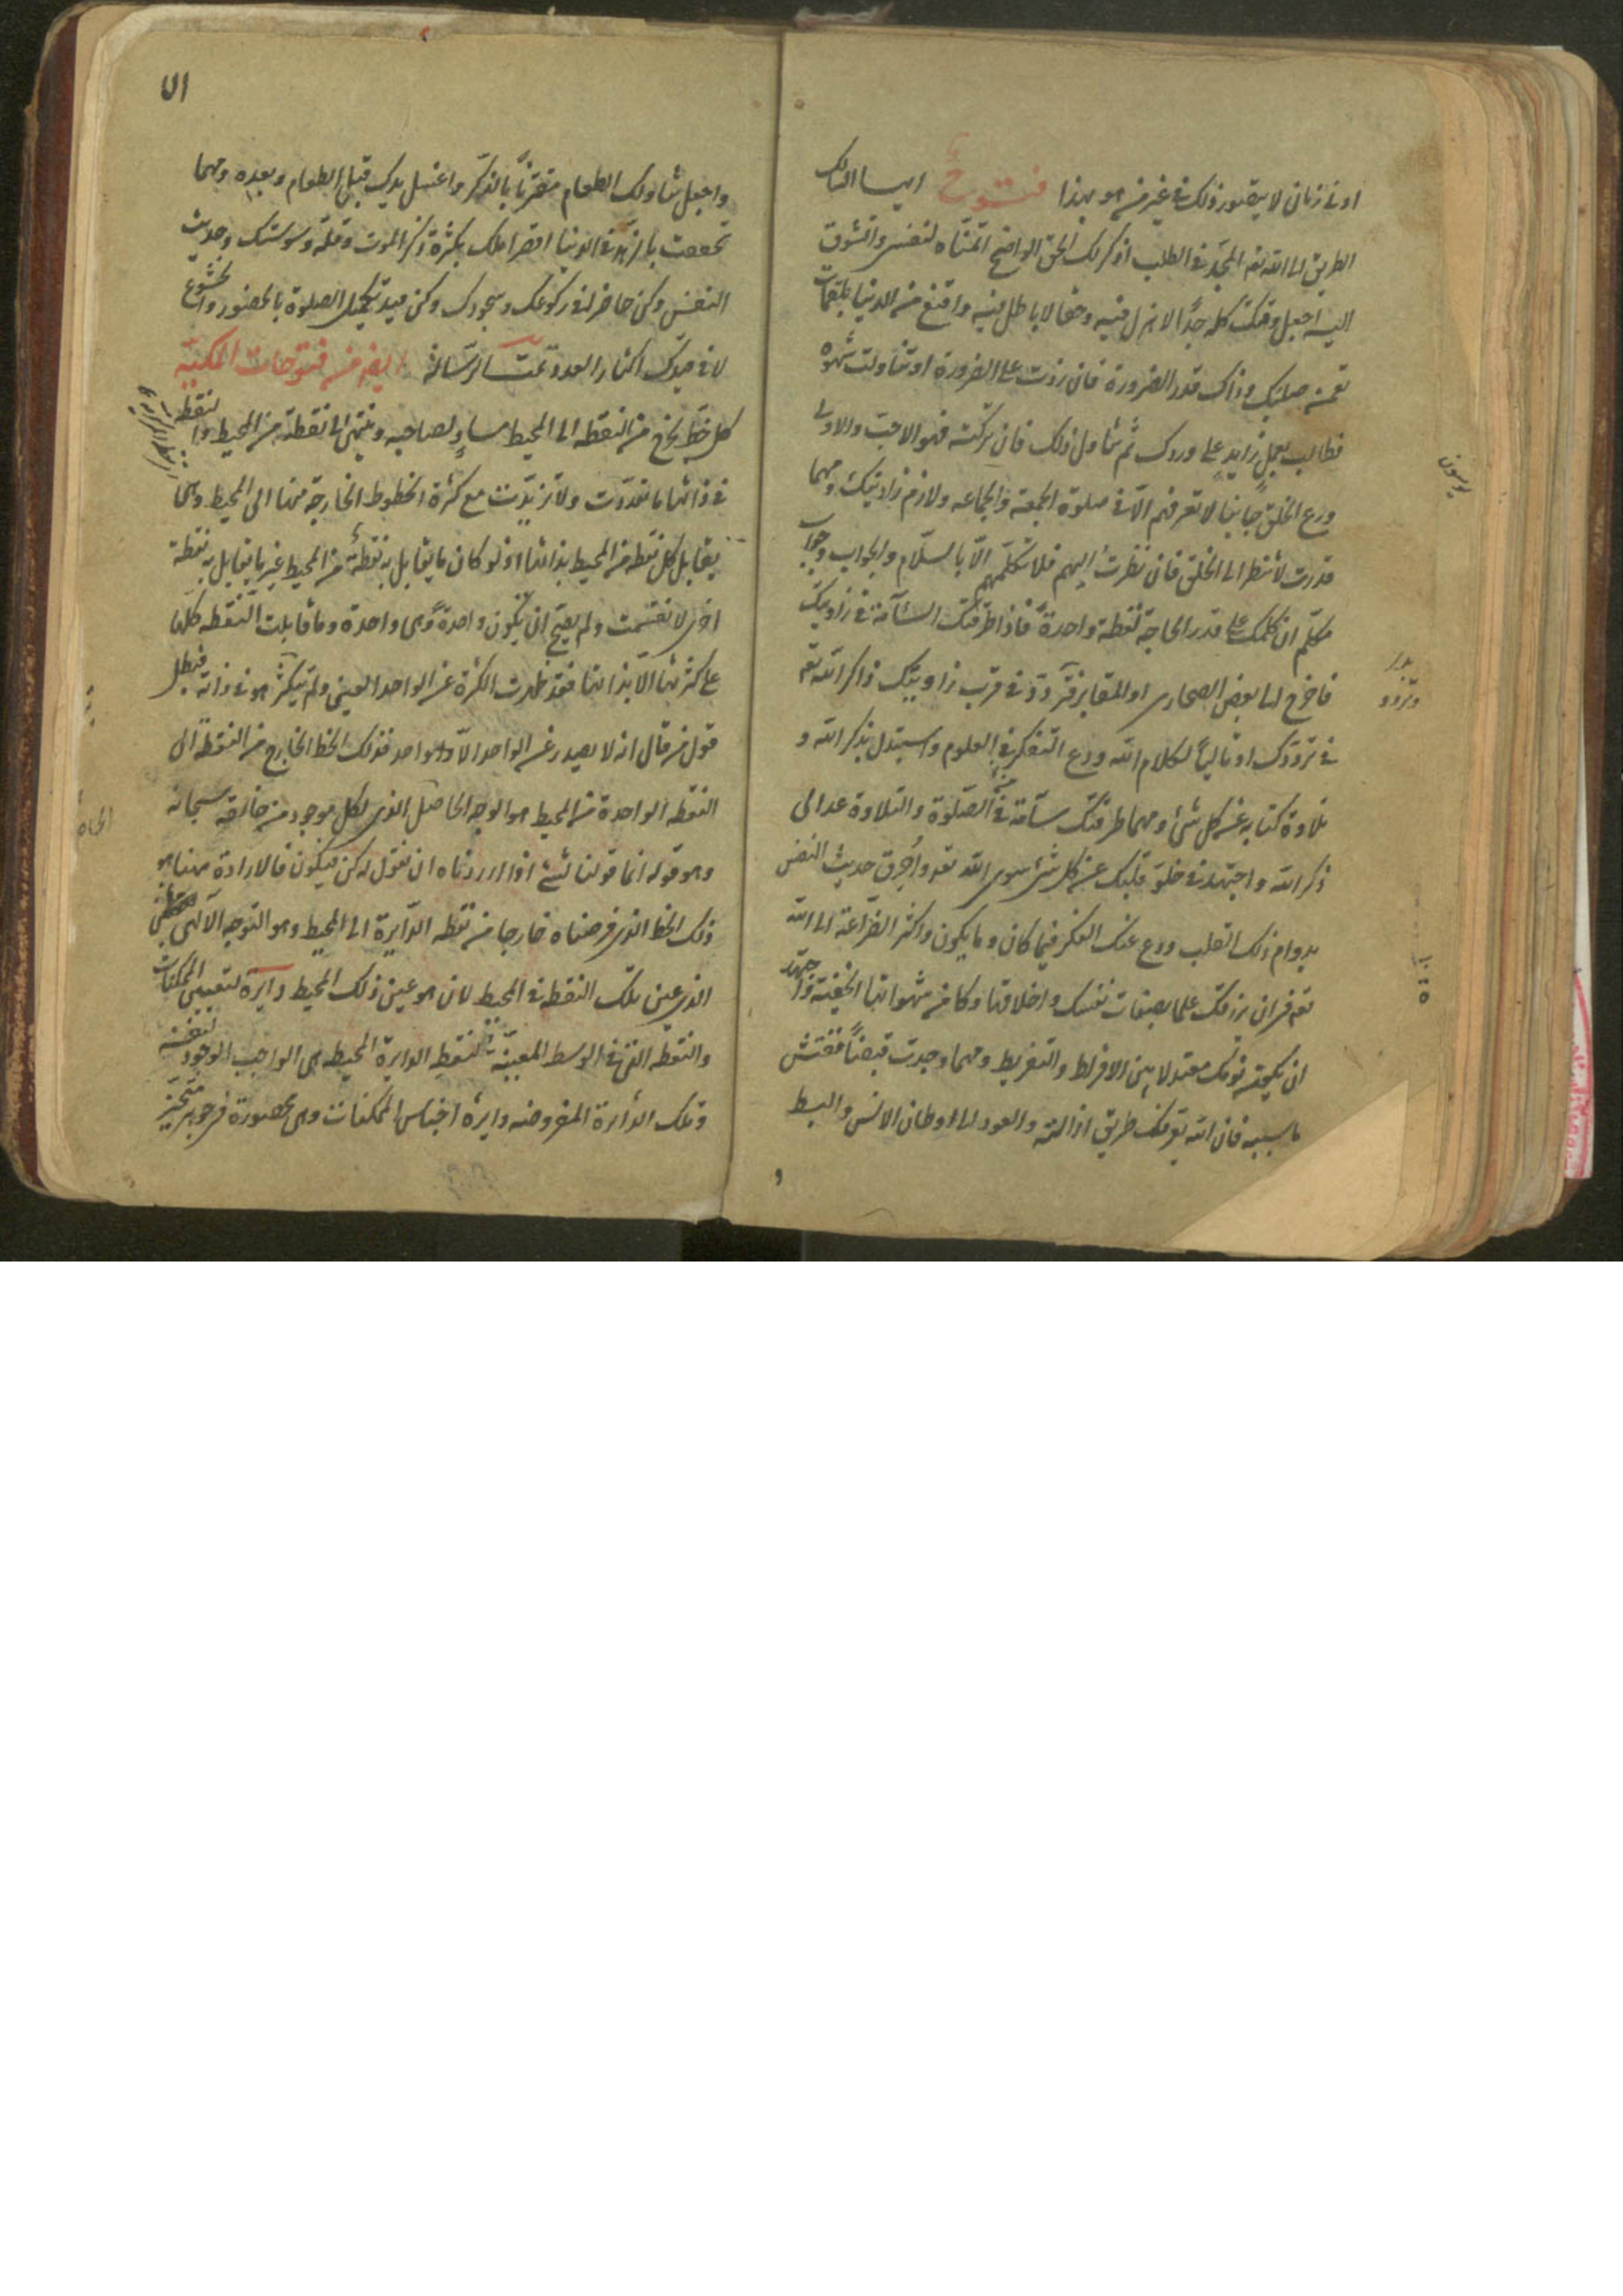 او فى زمان لا يتصور ذلك فى غير من هو بهذا فتوح ايها السالك
الطريق الى الله تعه المجد فى الطلب اذكر لك الحق الواضح اتمناه لنفسى واتشوق
اليه اجعل وقتك كله جدا لا هزل فيه وحقا لا باطل فيه واقنع من الدنيا بلقيمات
تقمن صلبك وذاك قدر الضرورة فان زدت على الضرورة او تناولت شهوه
فطالب بعمل زايد على وردك ثم تناول ذلك فان تركته فهو الاحب والاولى
ودع الخلق جانبا لا تعرفهم الا فى صلوة الجمعة والجماعه ولازم زاويتك ومهما
قدرت لا تنظر الى الخلق فان نظرت اليهم فلا تكلمهم الا بالسلام والجواب وجواب
مكلم ان كلمك على قدر الحاجة لفظة واحدة فاذا طرقتك السآمة فى زاويتك
فاخرج الى بعض الصحارى او المقابر فتردد فى قرب زاويتك ذاكر الله تعه
فى ترددك او تاليا لكلام الله ودع التفكر فى العلوم واستبدل بذكر الله و
تلاوة كتابه عن كل شئ ومهما طرقتك سآمة من الصلوة والتلاوة عد الى
ذكر الله واجتهد فى خلو قلبك عن كل شئ سوى الله تعه واحرق حديث النفس
بدوام ذلك القلب ودع عنك الفكر فيما كان وما يكون واكثر الضراعة الى الله
تعه فى ان يرزقك علما بصفات نفسك واخلاقها وكامن شهواتها الخفية واجتهد
ان يكون نومك معتدلا بين الافراط والتفريط ومهما وجدت قبضا ففتش
ما سببه فان الله يعرفك طريق ازالته والعود الى اوطان الانس والبسط
و
٧١
واجعل تناولك الطعام مقترنا بالذكر واغسل يدك قبل الطعام وبعده ومهما
تحققت بالزهد فى الدنيا اقصر املك بكثرة ذكر الموت وقلة وسوستك وحديث
النفس وكن حاضرا فى ركوعك وسجودك وكن مقيد تكميل الصلوة بالحضور والخشوع
لا فى قيدك اكثار العدد تمت الرسالة ايضا من فتوحات المكية
كل خط يخرج من النقطه الى المحيط مساو لصاحبه وينتهى الى نقطة من المحيط والنقطه
فى ذاتها ما تعددت ولا تزيدت مع كثرة الخطوط الخارجة منها الى المحيط وهى
يقابل كل نقطه من المحيط بذاتها اذ لو كان ما يقابل به نقطة من المحيط غير ما يقابل به نقطة
اخرى لانقسمت ولم يصح ان يكون واحدة وهى واحدة وما قابلت النقطه كلها
على كثرتها الا بذاتها فقد ظهرت الكثرة عن الواحد العين ولم يتكثر هو فى ذاته فبطل
قول من قال انه لا يصدر عن الواحد الا واحد فذلك الخط الخارج من النقطه الى
النقطه الواحدة من المحيط هو الوجه الحاصل الذى لكل موجود من خالقه سبحانه
وهو قوله انما قولنا لشئ اذا اردناه ان نقول له كن فيكون فالارادة هنا هو
ذلك الخط الذى فرضناه خارجا من نقطه الدايرة الى المحيط وهو التوجه الالهى
الذى عين تلك النقطه فى المحيط لان هو عين ذلك المحيط دايرة الممكنات
والنقطه التى فى الوسط المعينة لنقط الدايرة المحيط هى الواجب الوجود لنفسه
وتلك الدائرة المفروضه دايرة اجناس الممكنات وهى محصورة فى جوهر متحيز